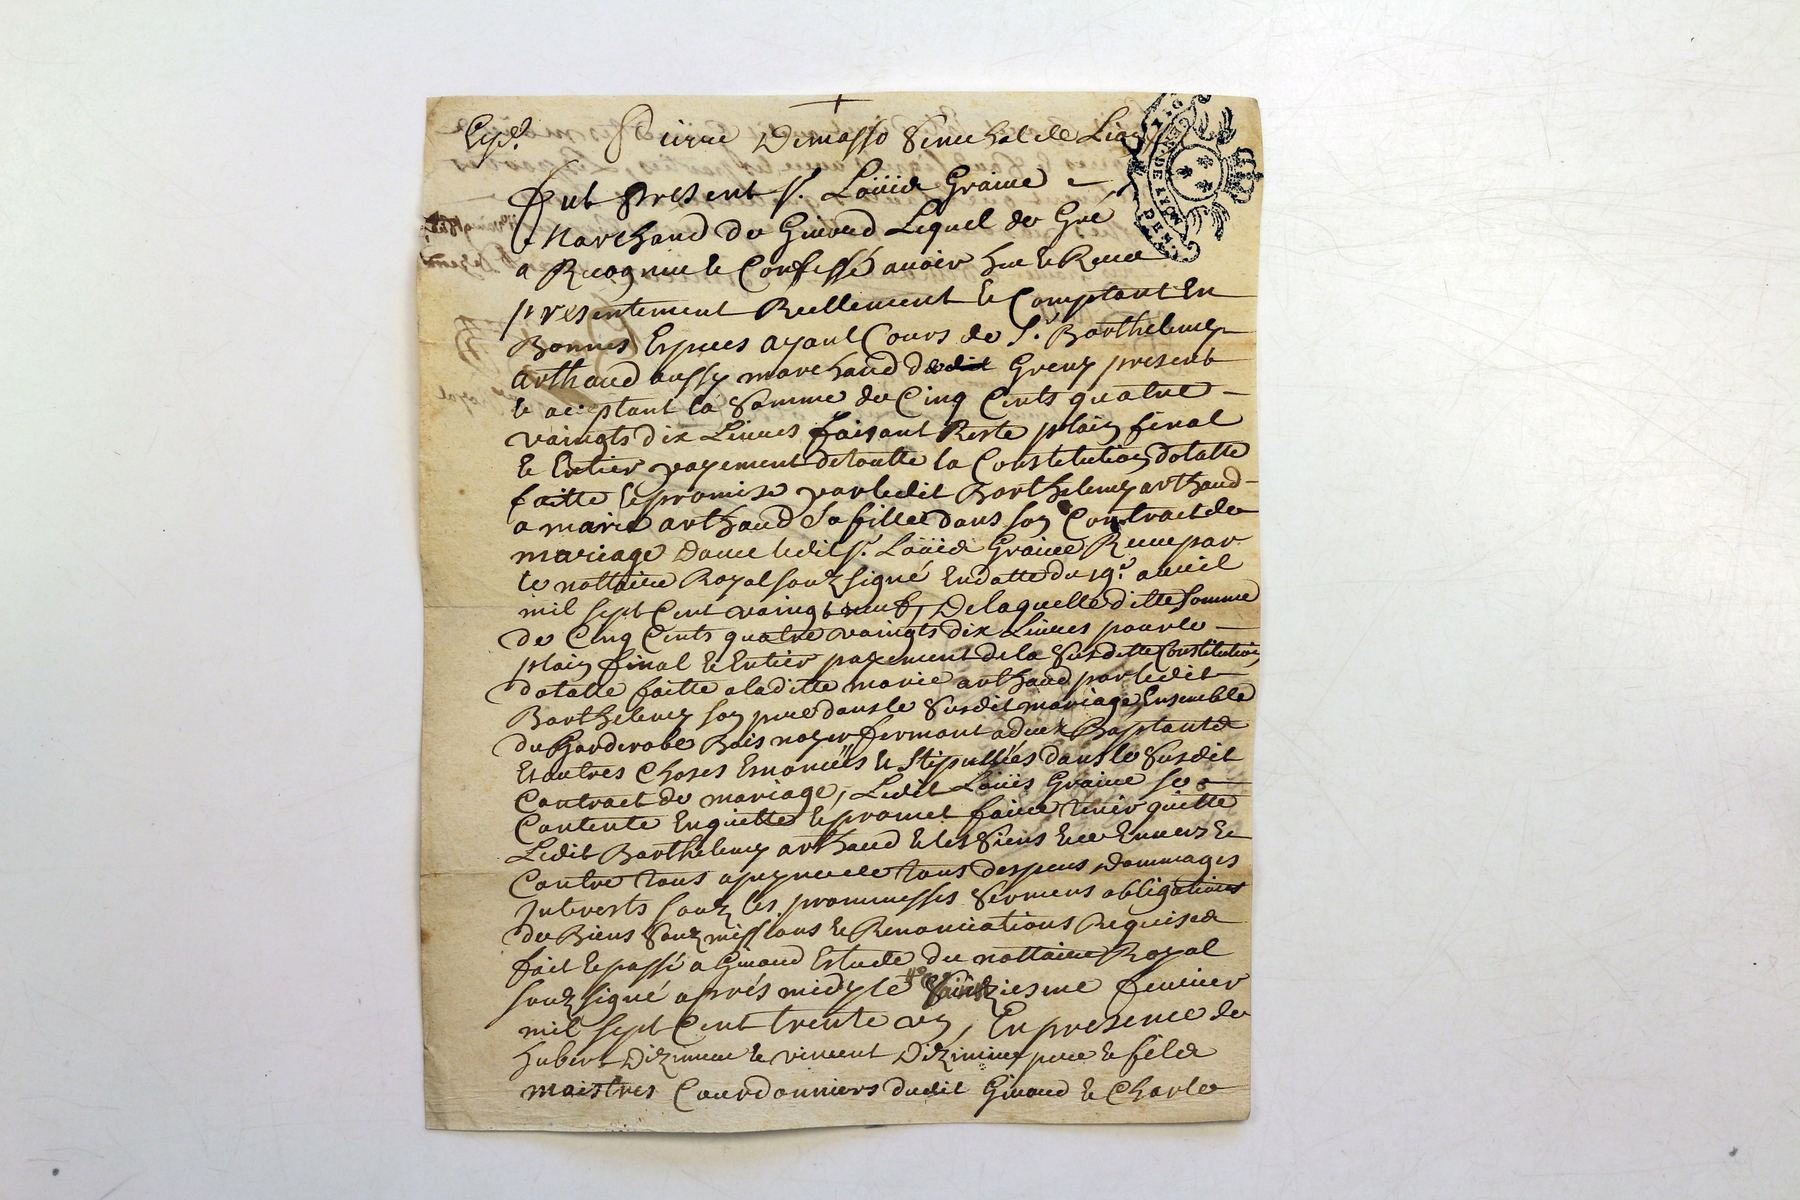 Pierre Demasso Senechal de Lion
fut present sr. Loüis Graine
Marchand de Givord Lequel de Gré
a Recognu et Confessé avoir heu et Receu
presentement Reellement et Comptant En
Bonnes Especes ayant Cours de Sr. Barthelemy
arthaud aussy marchand dudit present
et aceptant la Somme de Cinq Cents quatre
vaingts dix Livres faisant Reste plain final
et Entier payement de toutte la Constitution dotalle
faitte et promise par ledit Barthelemy arthaud
a marie arthaud Sa fille dans son Contract de
mariage avec ledit sr. Loüis Graine Receu par
le nottaire Royal souzsigné En datte du 19e. avril
mil sept Cent vaingt neuf, De laquelle ditte Somme
de Cinq Cents quatre vaingts dix Livres pour le
plain final et Entier payement de la Susditte Constitution
dotalle faitte a laditte marie arthaud par ledit
Barthelemy son pere dans le Susdit mariage, Ensemble
du Garderobe Bois noyer fermant a deux Baptants
Et autres Choses Enoncées et Stipullées dans le Susdit
Contract de mariage, Ledit Loüis Graine Se
Contente En quitte et promet faire tenir quitte
Ledit Barthelemy arthaud et les Siens Envers et
Contre tous a peyne de tous despens Dommages
Interests souz les prommesses Sermens obligations
de Biens Souzmissions et Renonciations Requises
fait et passé a Givord Estude du nottaire Royal
souzsigné aprés midy le fevrier
mil sept Cent trente un, En presence de
hubert et vincent pere et fils
maistres Courdonniers dudit Givord et Charle